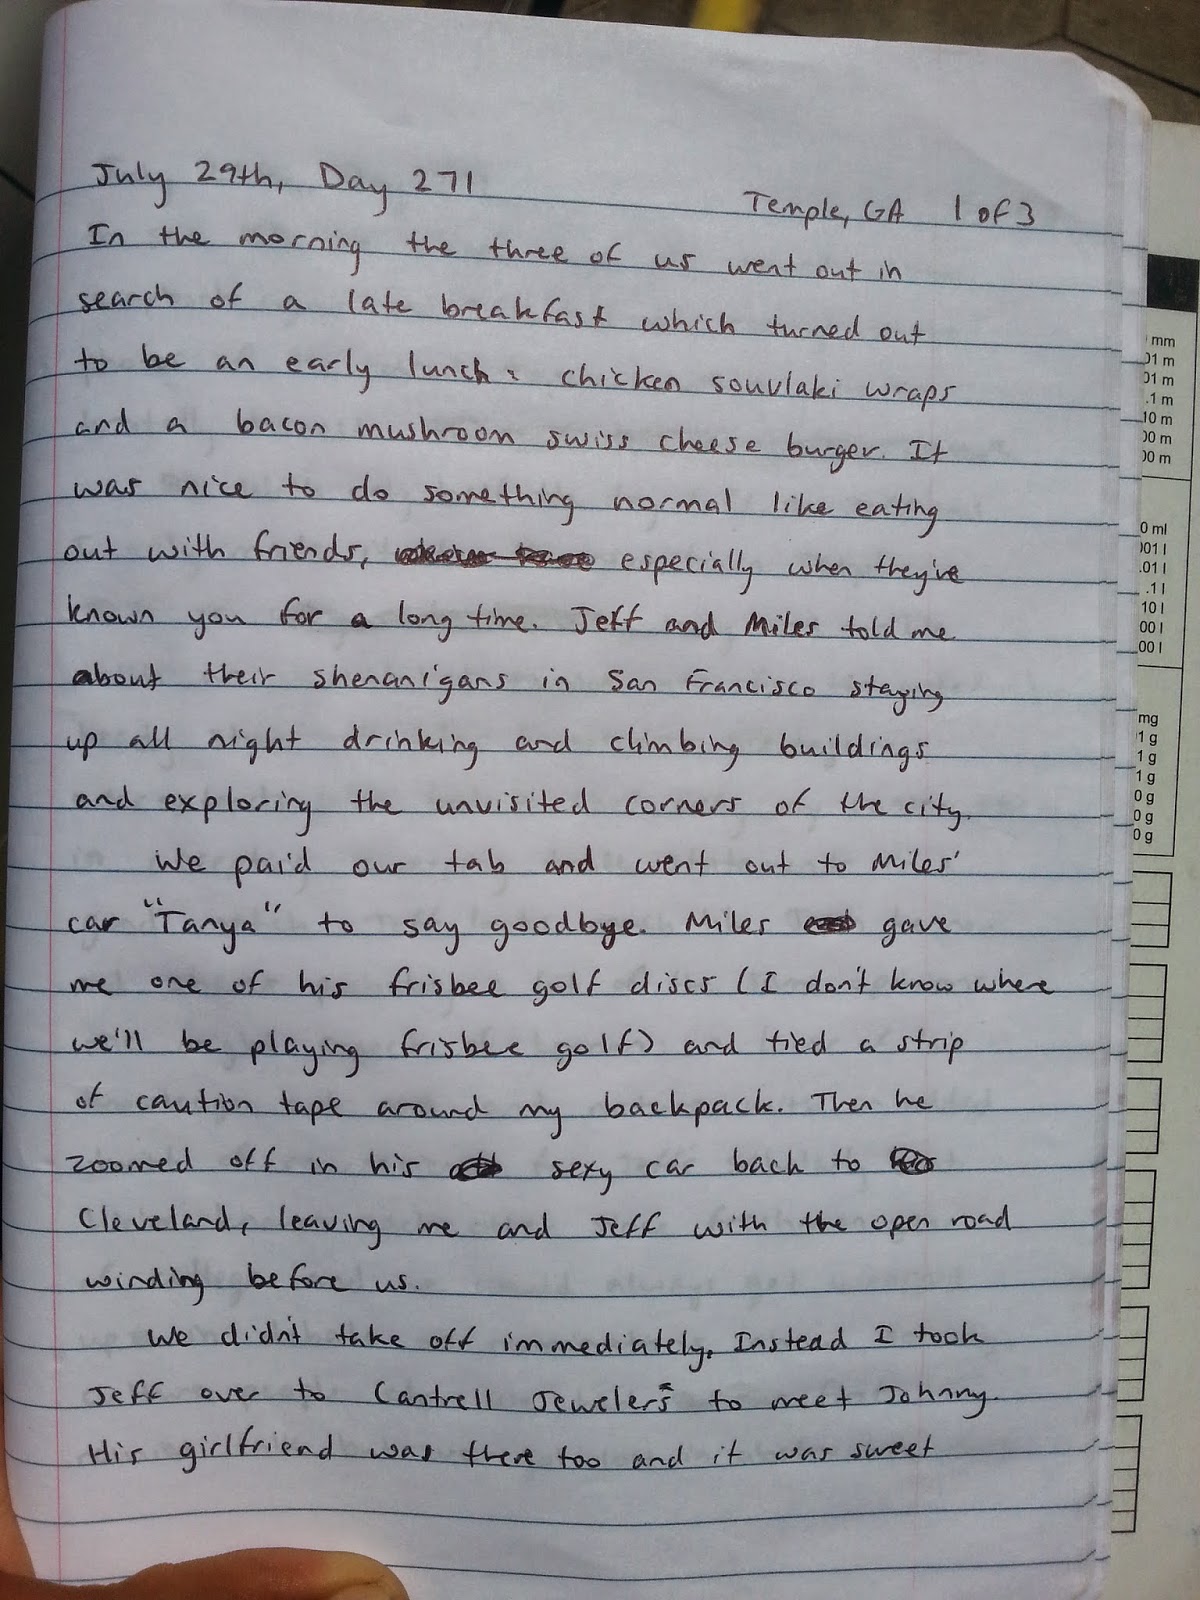 July 29th, Day 271
Temple, GA 1 of 3
In the morning the three of us went out in
search of a late breakfast which turned out
to be an early lunch: chicken souvlaki wraps
and a bacon mushroom swiss cheese burger. It
was nice to do something normal like eating
out with friends, especially when they've
known you for a long time. Jeff and Miles told me
about their shenanigans in San Francisco staying
up all night drinking and climbing buildings
and exploring the unvisited corners of the city.
We paid our tab and went out to Miles'
car "Tanya" to say goodbye. Miles gave
me one of his frisbee golf discs (I don't know where
we'll be playing frisbee golf) and tied a strip
of caution tape around my backpack. Then he
zoomed off in his sexy car back to
Cleveland, leaving me and Jeff with the open road
winding before us.
We didn't take off immediately. Instead I took
Jeff over to Cantrell Jewelers to meet Johnny.
His girlfriend was there too and it was sweet
mm
01 m
01 m
.1 m
10 m
00 m
00 m
0 ml
001 l
.01 l
.1 l
10 l
00 l
00 l
mg
1 g
1 g
1 g
0 g
0 g
0 g